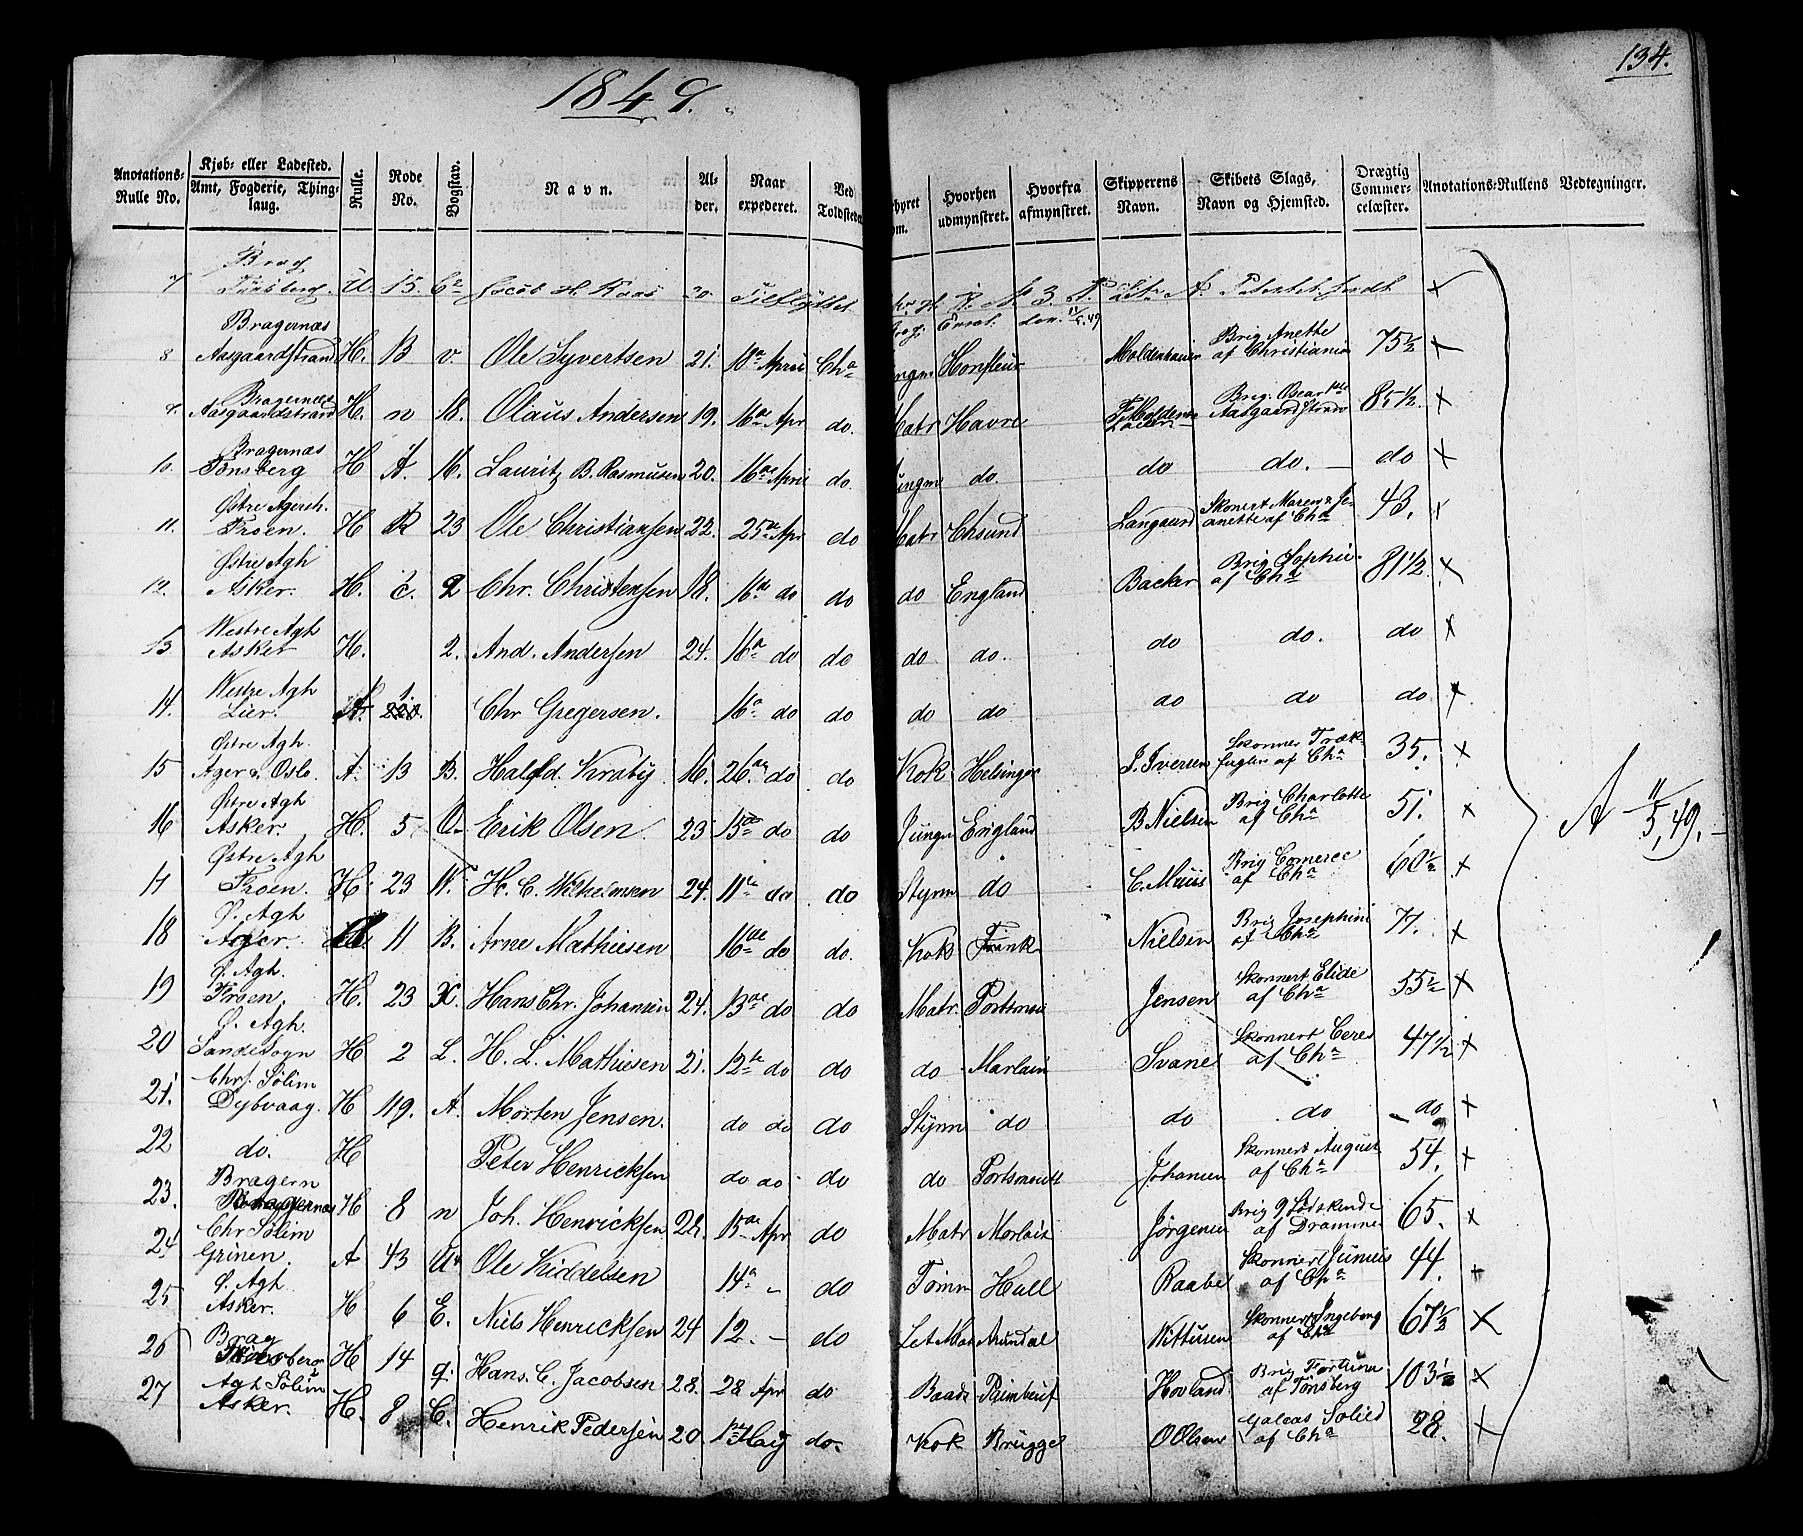 134.
1849.
Anotations-Rulle No. Kjøb- eller Ladested. Amt, Fogderie, Thinglaug. Rulle. Rode No. Bogstav. Navn. Alder. Naar expederet. Ved Toldstedet rhyret om. Hvorhen udmynstret. Hvorfra afmynstret. Skipperens Navn. Skibets Slags, Navn og Hjemsted. Drægtig Commercelæster. Anotations-Rullens Vedtegninger.
7 Brag Tønsberg. U 15. Jacob H. Kaas 20. Tilflyttet No 3 11/5.49 ×
8 Bragernæs Aasgaardstrand H. B v. Ole Syvertsen 21. 18de April Cha ungm Honfleur Moldenhauer Brig Anette af Christiania 75½ ×
9. Bragernæs Aasgaardstrand H. n 18. Olaus Andersen 19. 16de Apr do. Matr Havre Brig. Oscar 1ste Aasgaardstrand 85½. ×
10. Bragernæs Tønsberg H A. 16. Lauritz B. Rasmusen 20. 16de April do Jungm do. do do. do ×
11. Østre Agersh. Froen. H R 23 Ole Christiansen 22. 25de Apr do Matr Ehsund Langaard Skonert Maren & Jeanette af Cha 43. ×
12. Østre Agh Asker. H. c. 2 Chr. Christensen 18. 16de do do do England Backer Brig Sophie af Cha 81½. ×
13 Westre Agh Asker H. 2. And. Andersen 24. 16de do do do do. do do. do ×
14. Westre Agh Lier. A. Chr Gregersen. 16de do do do do do do do. ×
15 Østre Agh. Ager v. Oslo. A. 13 B. Halfd. Kraby 16. 26de do do Kok Helsingør J. Iversen Skonner Trækfuglen af Cha 35. ×
16 Østre Agh Asker. H. 5 O. Erik Olsen 23 15de do do Jungm England B Nielsen Brig Charlotte af Cha 51. ×
17 Østre Agh Froen. H. 23 W. H. C. Wilhelmsen 24. 11te do do Styrm do C. Muus Brig Comerce af Cha 60½ ×
18 Ø. Agh Ager. 11 B. Arne Mathiesen 16de do do. Kok Frank Nielsen Brig Josephine af Cha 77. ×
19 Ø. Agh. Froen. H. 23 X. Hans Chr. Johansen 24. 13de do do Matr. Portsmou Jensen Skonnert Elide af Cha 55½ ×
20 Ø. Agh. Sandesogn H 2 L. H. L. Mathiesen 21. 12te do do do Marlain Svane Skonnert Ceres af Cha 47½ ×
21. Chrf. Sølim Dybvaag. H 119. A. Morten Jensen. do do do Styrm do do do do ×
22 do. H Peter Henricksen do do do do Portsmouth Johansen Skonnert August af Cha 54. ×
23. Bragern H 8 n Joh. Henricksen 28. 15de Apr do Matr Morlaix Jørgensen Brig 9 Sødskende af Dramme 65. ×
24 Chr Sølim Grinen. A 43 U. Ole Kiddelsen 14de - do Tømm Hull Raabe Skonnert Junius af Cha 44. ×
25 Ø. Agh. Asker. H 6 E. Niels Henricksen 24 12. - do Let Mat Arundal Wittusen Skonnert Ingeborg af Cha 67½ ×
26 Brag H 14 q. Hans. C. Jacobsen 28. 28 Apr do Baads Paimbeuf Hovland Brig Fortuna af Tønsberg 103½ ×
27 Agh Sølim Asker. H. 8 C. Henrik Pedersen 20 1ste Maij do. Kok Brügge O Olsen Galeas Solied af Cha 28. ×
A 11/5.49.